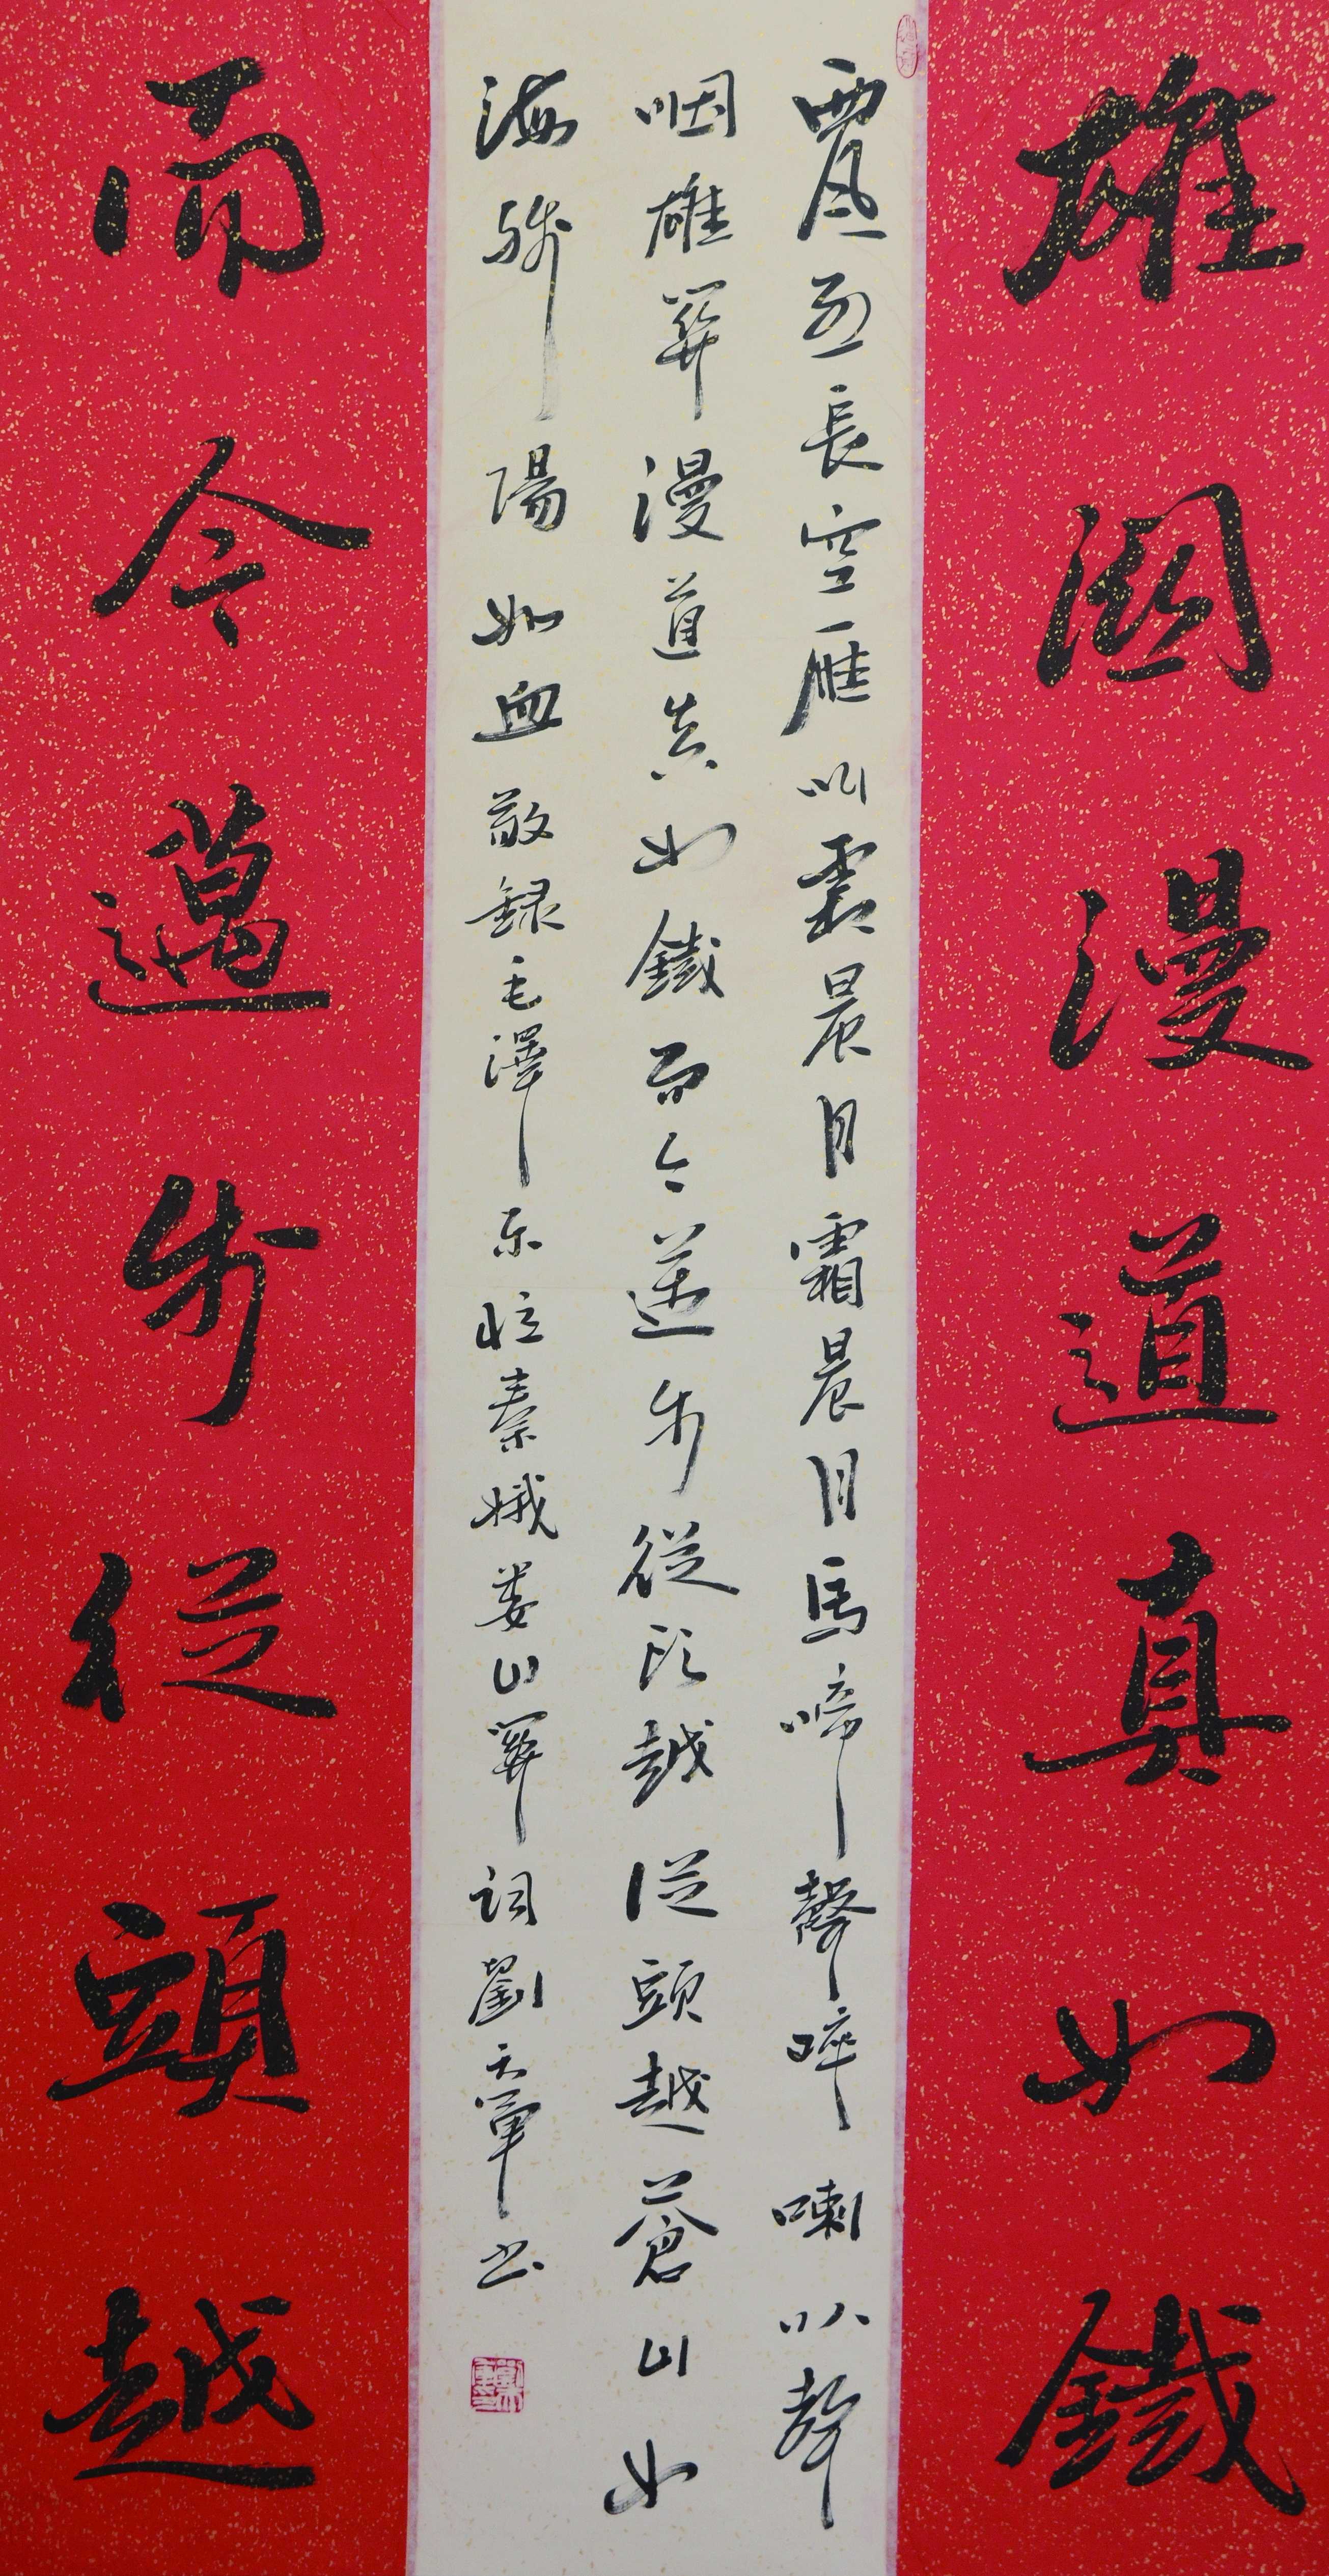 雄關漫道真如鐵
西風烈長空雁叫霜晨月霜晨月馬啼聲碎喇叭聲
咽雄關漫道真如鐵而今邁步從頭越從頭越蒼山如
海殘陽如血敬録毛澤东忆秦娥婁山關詞劉軍书
而今邁步從頭越